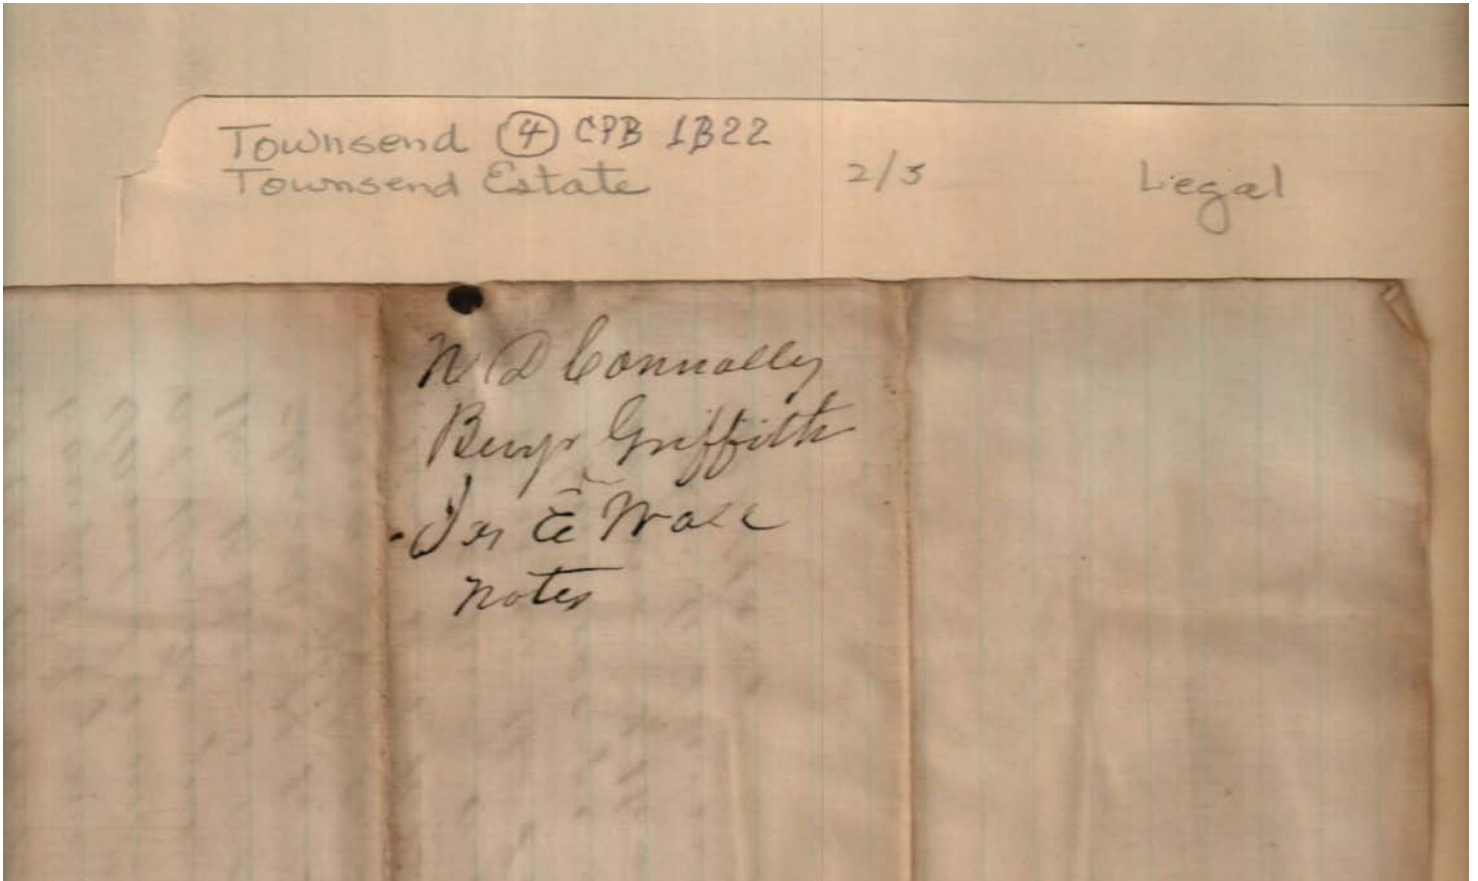 Townsend ④ CPB 1B22
Townsend Estate 2/5 Legal
N D Connally
Benj Griffith
E Wall
notes